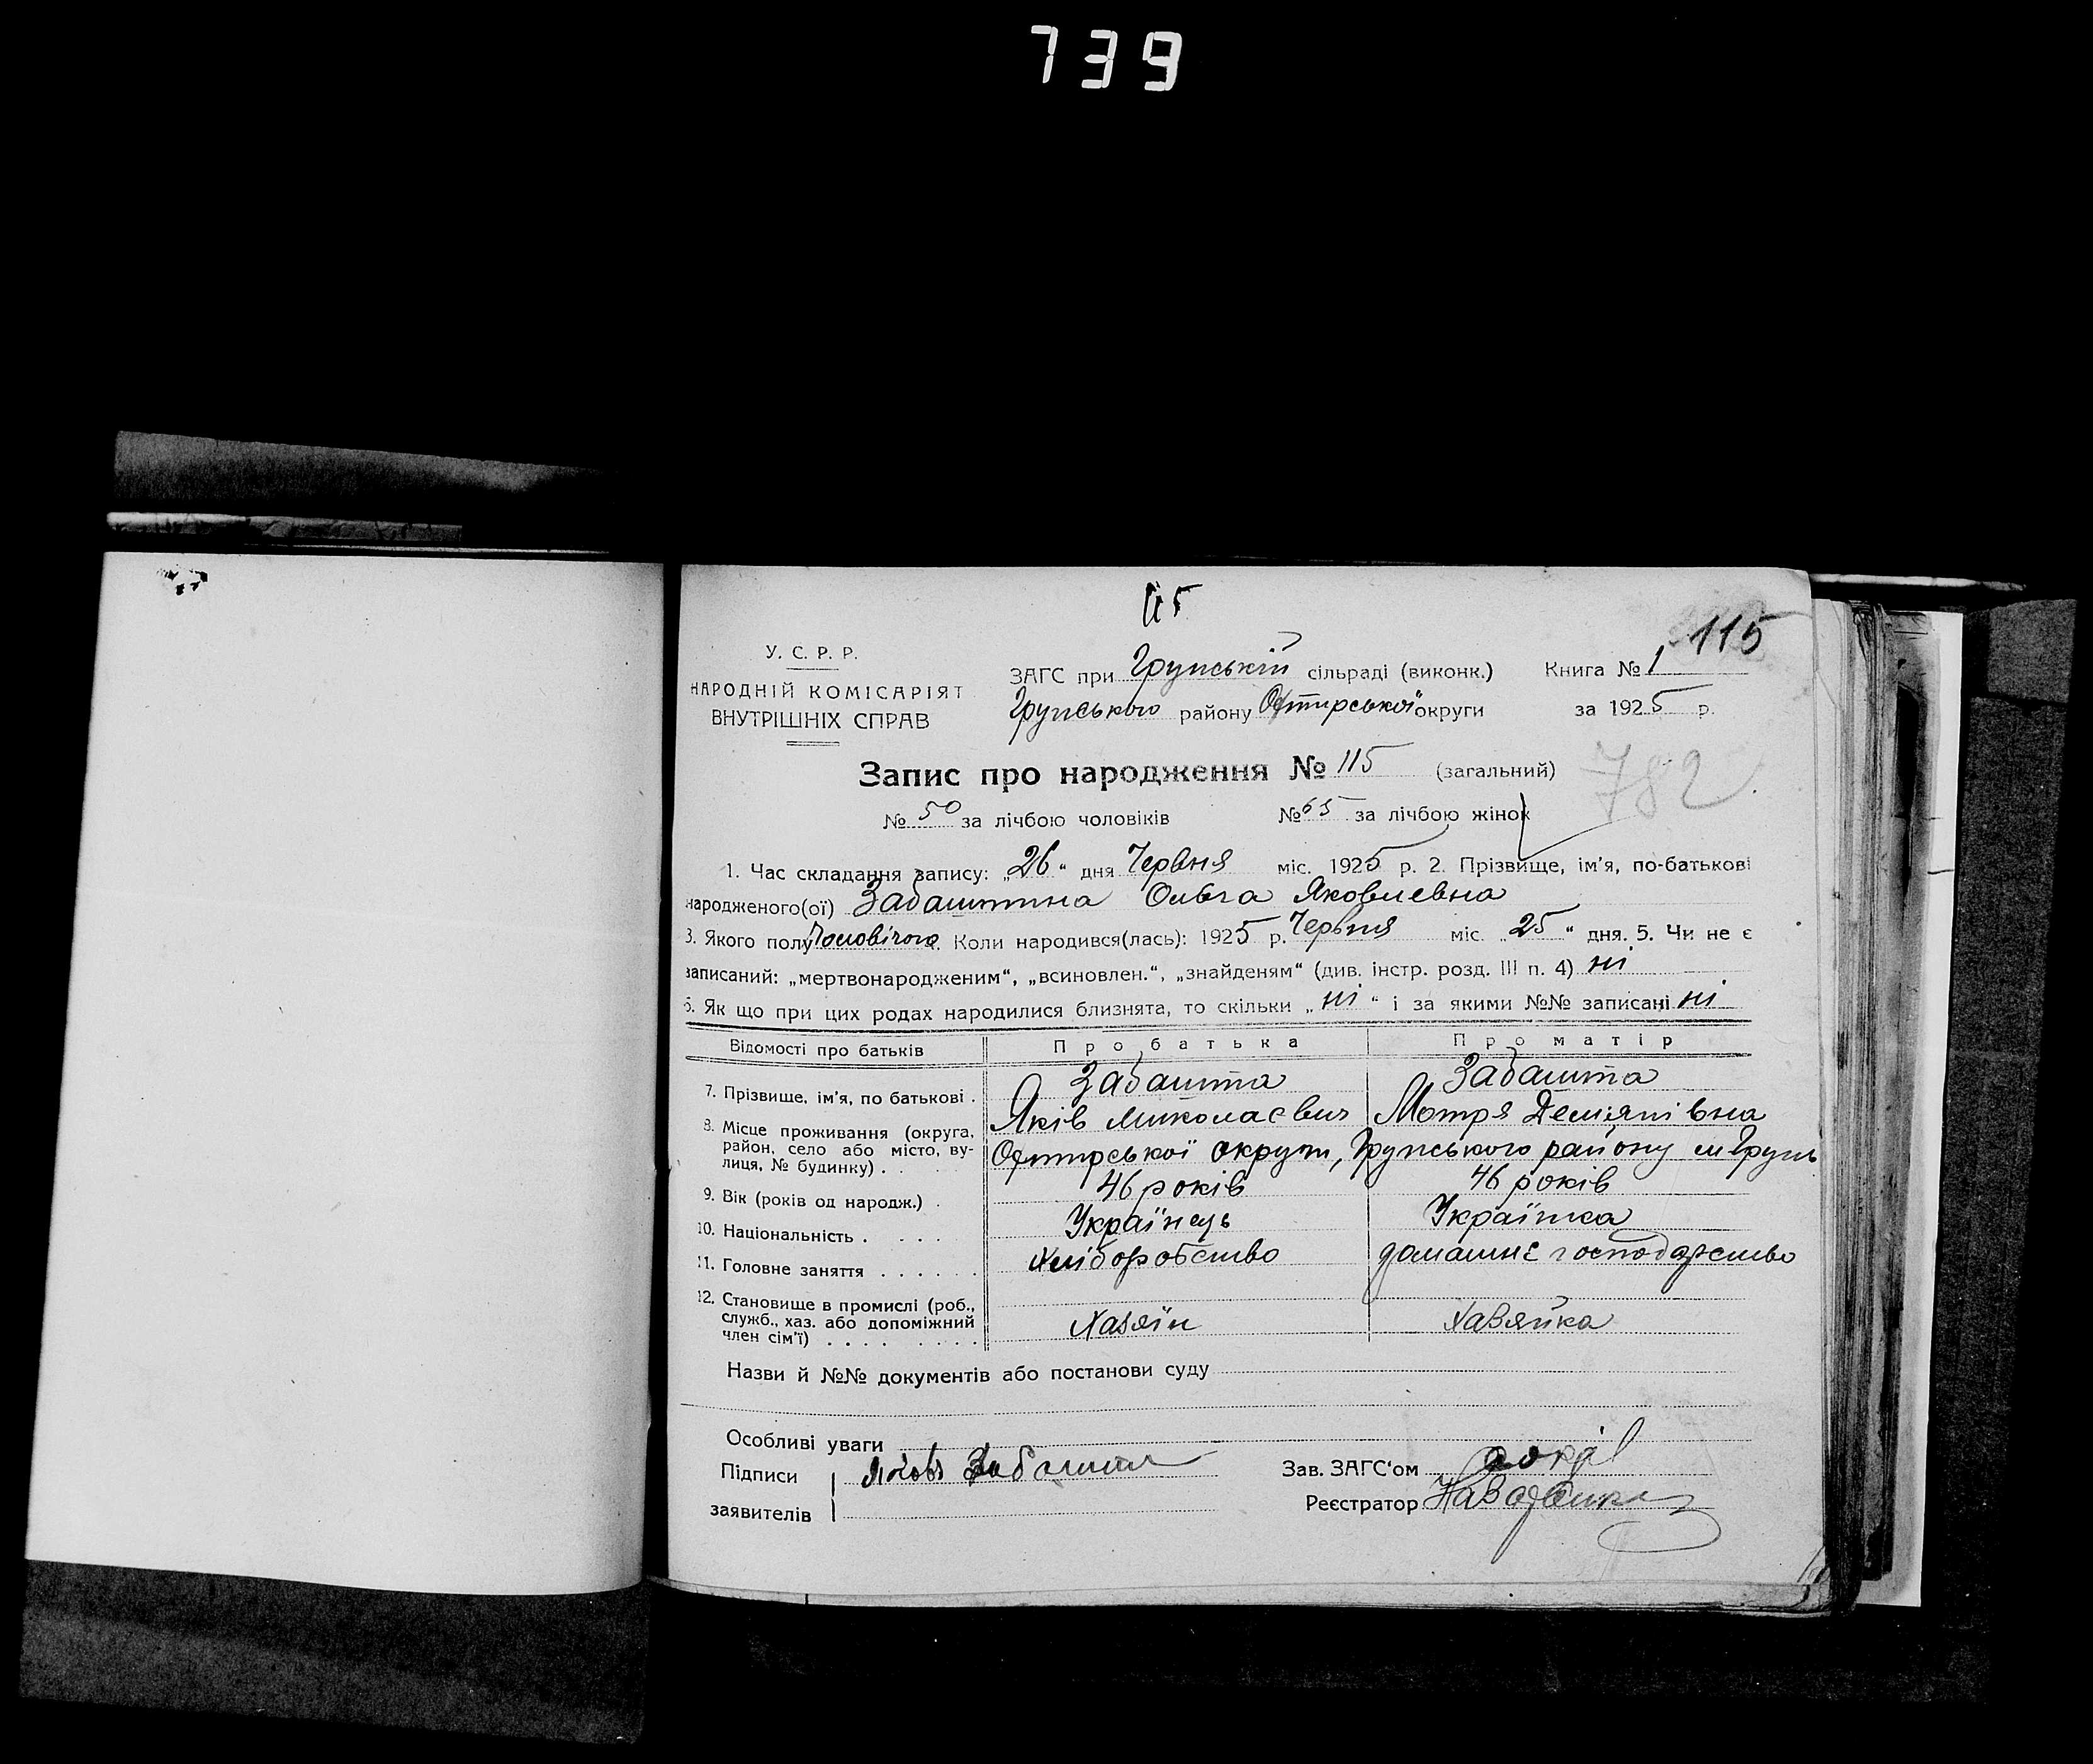 739
115
115
У. С. Р. Р.
НАРОДНІЙ КОМІСАРІЯТ
ВНУТРІШНІХ СПРАВ
ЗАГС при Грунській сільраді (виконк.) Книга № 1
Грунського району Охтирської округи за 1925 р.
Запис про народження № 115 (загальний)
782
№ 50 за лічбою чоловіків № 65 за лічбою жінок
1. Час складання запису: „26“ дня Червня міс. 1925 р. 2. Прізвище, ім'я, по-батькові
народженого(ої) Забаштина Ольга Яковлевна
3. Якого полу Коли народився(лась): 1925 р. Червня міс. „25“ дня. 5. Чи не є
записаний: „мертвонародженим“, „всиновлен.“, „знайденям“ (див. інстр. розд. III п. 4) ні
6. Як що при цих родах народилися близнята, то скільки „ні“ і за якими №№ записані ні
Відомості про батьків Про батька Про матір
7. Прізвище, ім'я, по батькові . Забашта Яків Миколаєвич Забашта Мотря Демянівна
8. Місце проживання (округа, район, село або місто, вулиця, № будинку) . . Охтирської округи, Грунського району м Грунь
9. Вік (років од народж.) . 46 років 46 років
10. Національність . . . . Українець Українка
11. Головне заняття . . . . . . Хліборобство домашнє господарство
12. Становище в промислі (роб.,
служб., хаз. або допоміжний
член сім'ї) . . . . . . . . Хазяїн Хазяйка
Назви й №№ документів або постанови суду
Особливі уваги
Підписи Яков Забашта Зав. ЗАГС'ом
заявителів Реєстратор